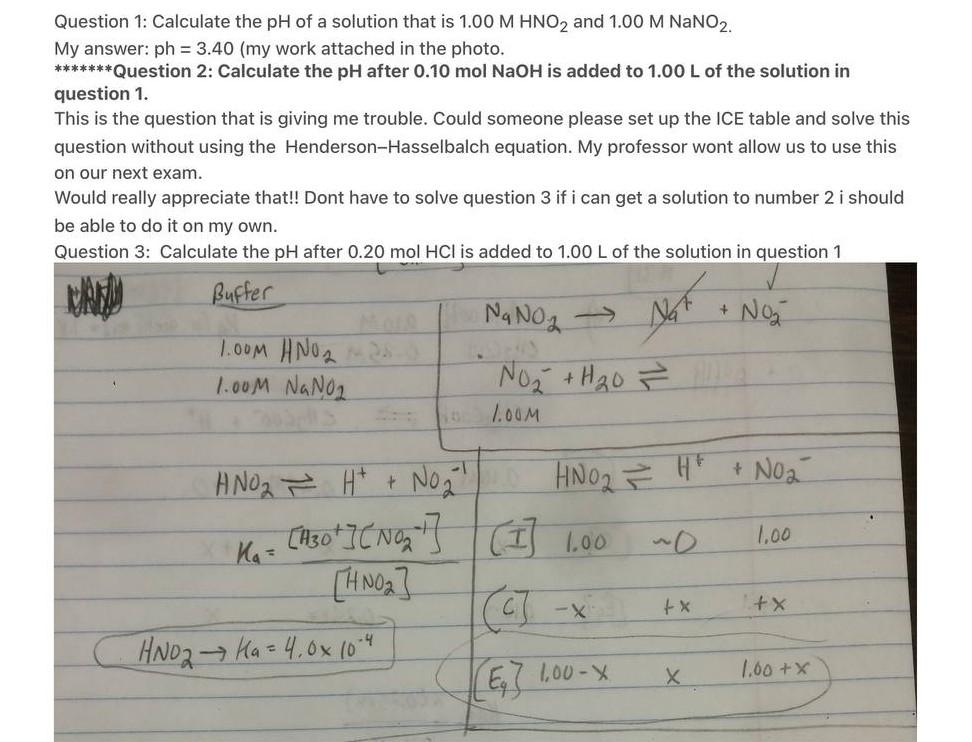 Question 1: Calculate the pH of a solution that is 1.00 M HNO₂ and 1.00 M NaNO₂.
My answer: ph = 3.40 (my work attached in the photo.
*******Question 2: Calculate the pH after 0.10 mol NaOH is added to 1.00 L of the solution in
question 1.
This is the question that is giving me trouble. Could someone please set up the ICE table and solve this
question without using the Henderson–Hasselbalch equation. My professor wont allow us to use this
on our next exam.
Would really appreciate that!! Dont have to solve question 3 if i can get a solution to number 2 i should
be able to do it on my own.
Question 3: Calculate the pH after 0.20 mol HCl is added to 1.00 L of the solution in question 1
Buffer
1.00M HNO₂
1.00M NaNO₂
NaNO₂ → Na⁺ + NO₂⁻
NO₂⁻ + H₂O ⇌
1.00M
HNO₂ ⇌ H⁺ + NO₂⁻¹
Ka = [H3O⁺][NO₂⁻¹]
[HNO₂]
HNO₂ → Ka = 4.0 x 10⁻⁴
HNO₂ ⇌ H⁺ + NO₂⁻
[I] 1.00 ~0 1.00
[C] -x +x +x
[Eq] 1.00-x x 1.00+x